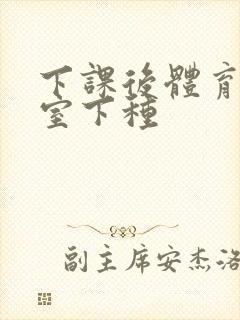 下課後體育
室下種
副主席安杰洛